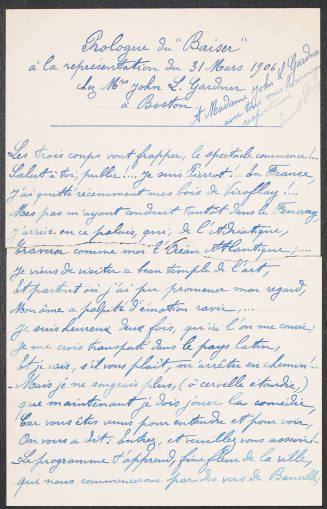 Prologue du "Baiser"
à la représentation du 31 Mars 1906,
chez Mrs John L. Gardner
à Boston
A Madame John L. Gardner
avec tous mes hommages
respectueux
Les trois coups vont frapper, le spectacle commence!..
Salut à toi, public!... Je suis Pierrot! En France,
J'ai quitté récemment mes bois de Viroflay!...
Mes pas m'ayant conduit tantôt dans le Fenway
J'arrive en ce palais, qui, de l'Adriatique,
Traversa comme moi l'Océan Atlantique;...
Je viens de visiter ce beau temple de l'art,
Et partout où j'ai pu promener mon regard,
Mon âme a palpité d'émotion ravie,...
Je suis heureux deux fois, qu'ici l'on me convie,
Je me crois transporté dans le pays latin,
Et je vais, s'il vous plaît, m'arrêter en chemin!..
Mais je ne songeais plus, (ô cervelle étourdie,)
que maintenant je dois jouer la comédie,
Car vous êtes venus pour entendre et pour voir,
On vous a dit: Entrez, et veuillez vous asseoir!
Le programme t'apprend, fine fleur de la ville,
que nous commencerons par des vers de Banville,